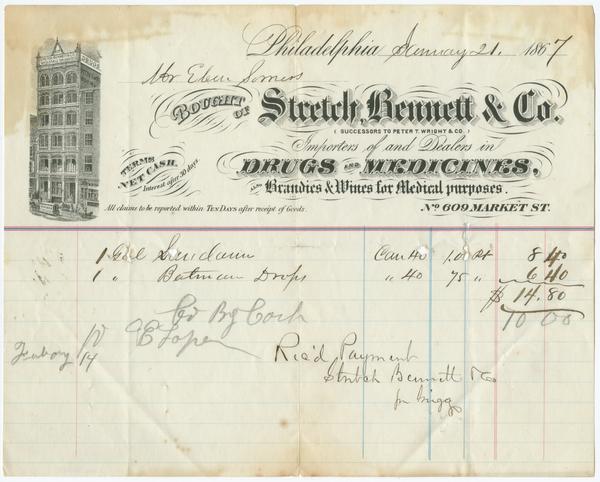 Philadelphia January 21. 1867
Mr Eben Somers
BOUGHT OF Stretch, Bennett & Co.
( SUCCESSORS TO PETER T. WRIGHT & CO. )
Importers of and Dealers in
DRUGS AND MEDICINES,
ALSO Brandies & Wines for Medical purposes.
TERMS NET CASH.
Interest after 30 days.
All claims to be reported within TEN DAYS after receipt of Goods.
No 609 MARKET ST.
1 Gall Can 40 1.00 8 40
1 " Bateman Drops " 40 75 " 6 40
$ 14.80
10 00
By Cash
Rec'd Payment
Stretch Bennett & Co